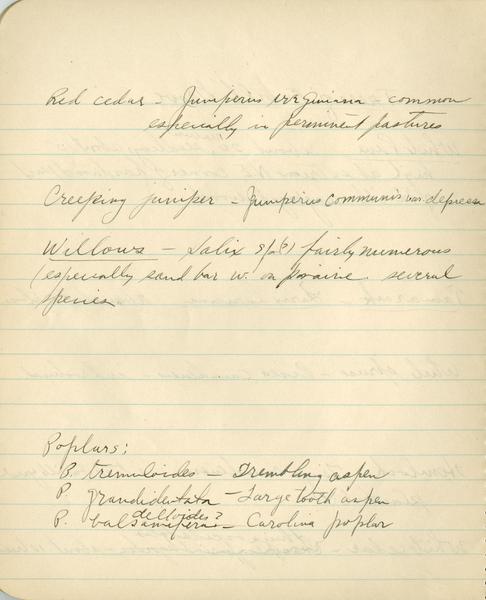 Red cedar - Juniperus virginiana common
especially in perminent pastures
Creeping juniper - Juniperius communis var. depressa
Willows - Salix sp(?) fairly numerous
(especially sand bar w. on prairie. several
species
Poplars:
P. tremuloides - Trembling aspen
P. grandidentata - Large tooth aspen
deltoides?
P. balsamiferae - Carolina poplar